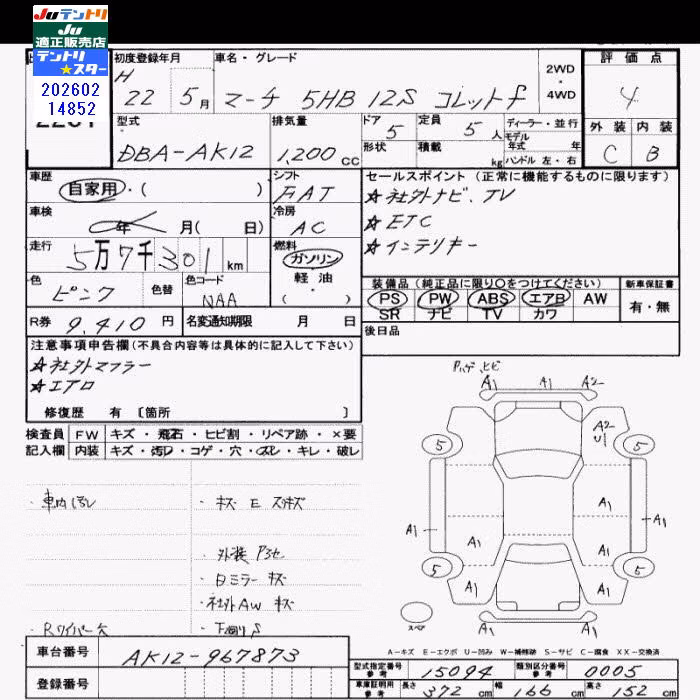 Juテントリ
Ju
適正販売店
テントリ
★スター
202602
14852
初度登録年月
車名・グレード
2WD
・
4WD
評価点
H 22 5月
マーチ 5HB 12S コレットf
4
型式
排気量
ドア 5
定員 5人
ディーラー・並行
モデル年式 年
外装 内装
DBA-AK12
1,200cc
形状
積載 kg
ハンドル 左・右
C B
車歴
自家用・( )
シフト
FAT
セールスポイント (正常に機能するものに限ります)
☆社外ナビ、TV
車検
年 月( 日)
冷房
AC
☆ETC
☆インテリキー
走行
5万7千301km
燃料
ガソリン
軽油
( )
色
ピンク
色替
色コード
NAA
装備品 (純正品に限り〇をつけてください)
新車保証書
PS PW ABS エアB AW
SR ナビ TV カワ
有・無
R券 9,410円
名変通知期限 月 日
後日品
注意事項申告欄(不具合内容等は具体的に記入して下さい)
☆社外マフラー
☆エアロ
修復歴 有〔箇所 〕
検査員 FW キズ・飛石・ヒビ割・リペア跡・×要
記入欄 内装 キズ・汚レ・コゲ・穴・スレ・キレ・破レ
A1 A1 A2
A2
U1
5 5
A1
A1 A1
A1 A1
5 5
A1 A1
スペア
・キズ E
・外装
・ミラー キズ
・社外AW キズ
・Rワイパー欠
・下廻りS
A-キズ E-エクボ U-凹み W-補修跡 S-サビ C-腐食 XX-交換済
車台番号 AK12-967873
登録番号
型式指定番号 参考 15094
類別区分番号 参考 0005
車庫証明用 参考 長さ 372cm 幅 166cm 高さ 152cm